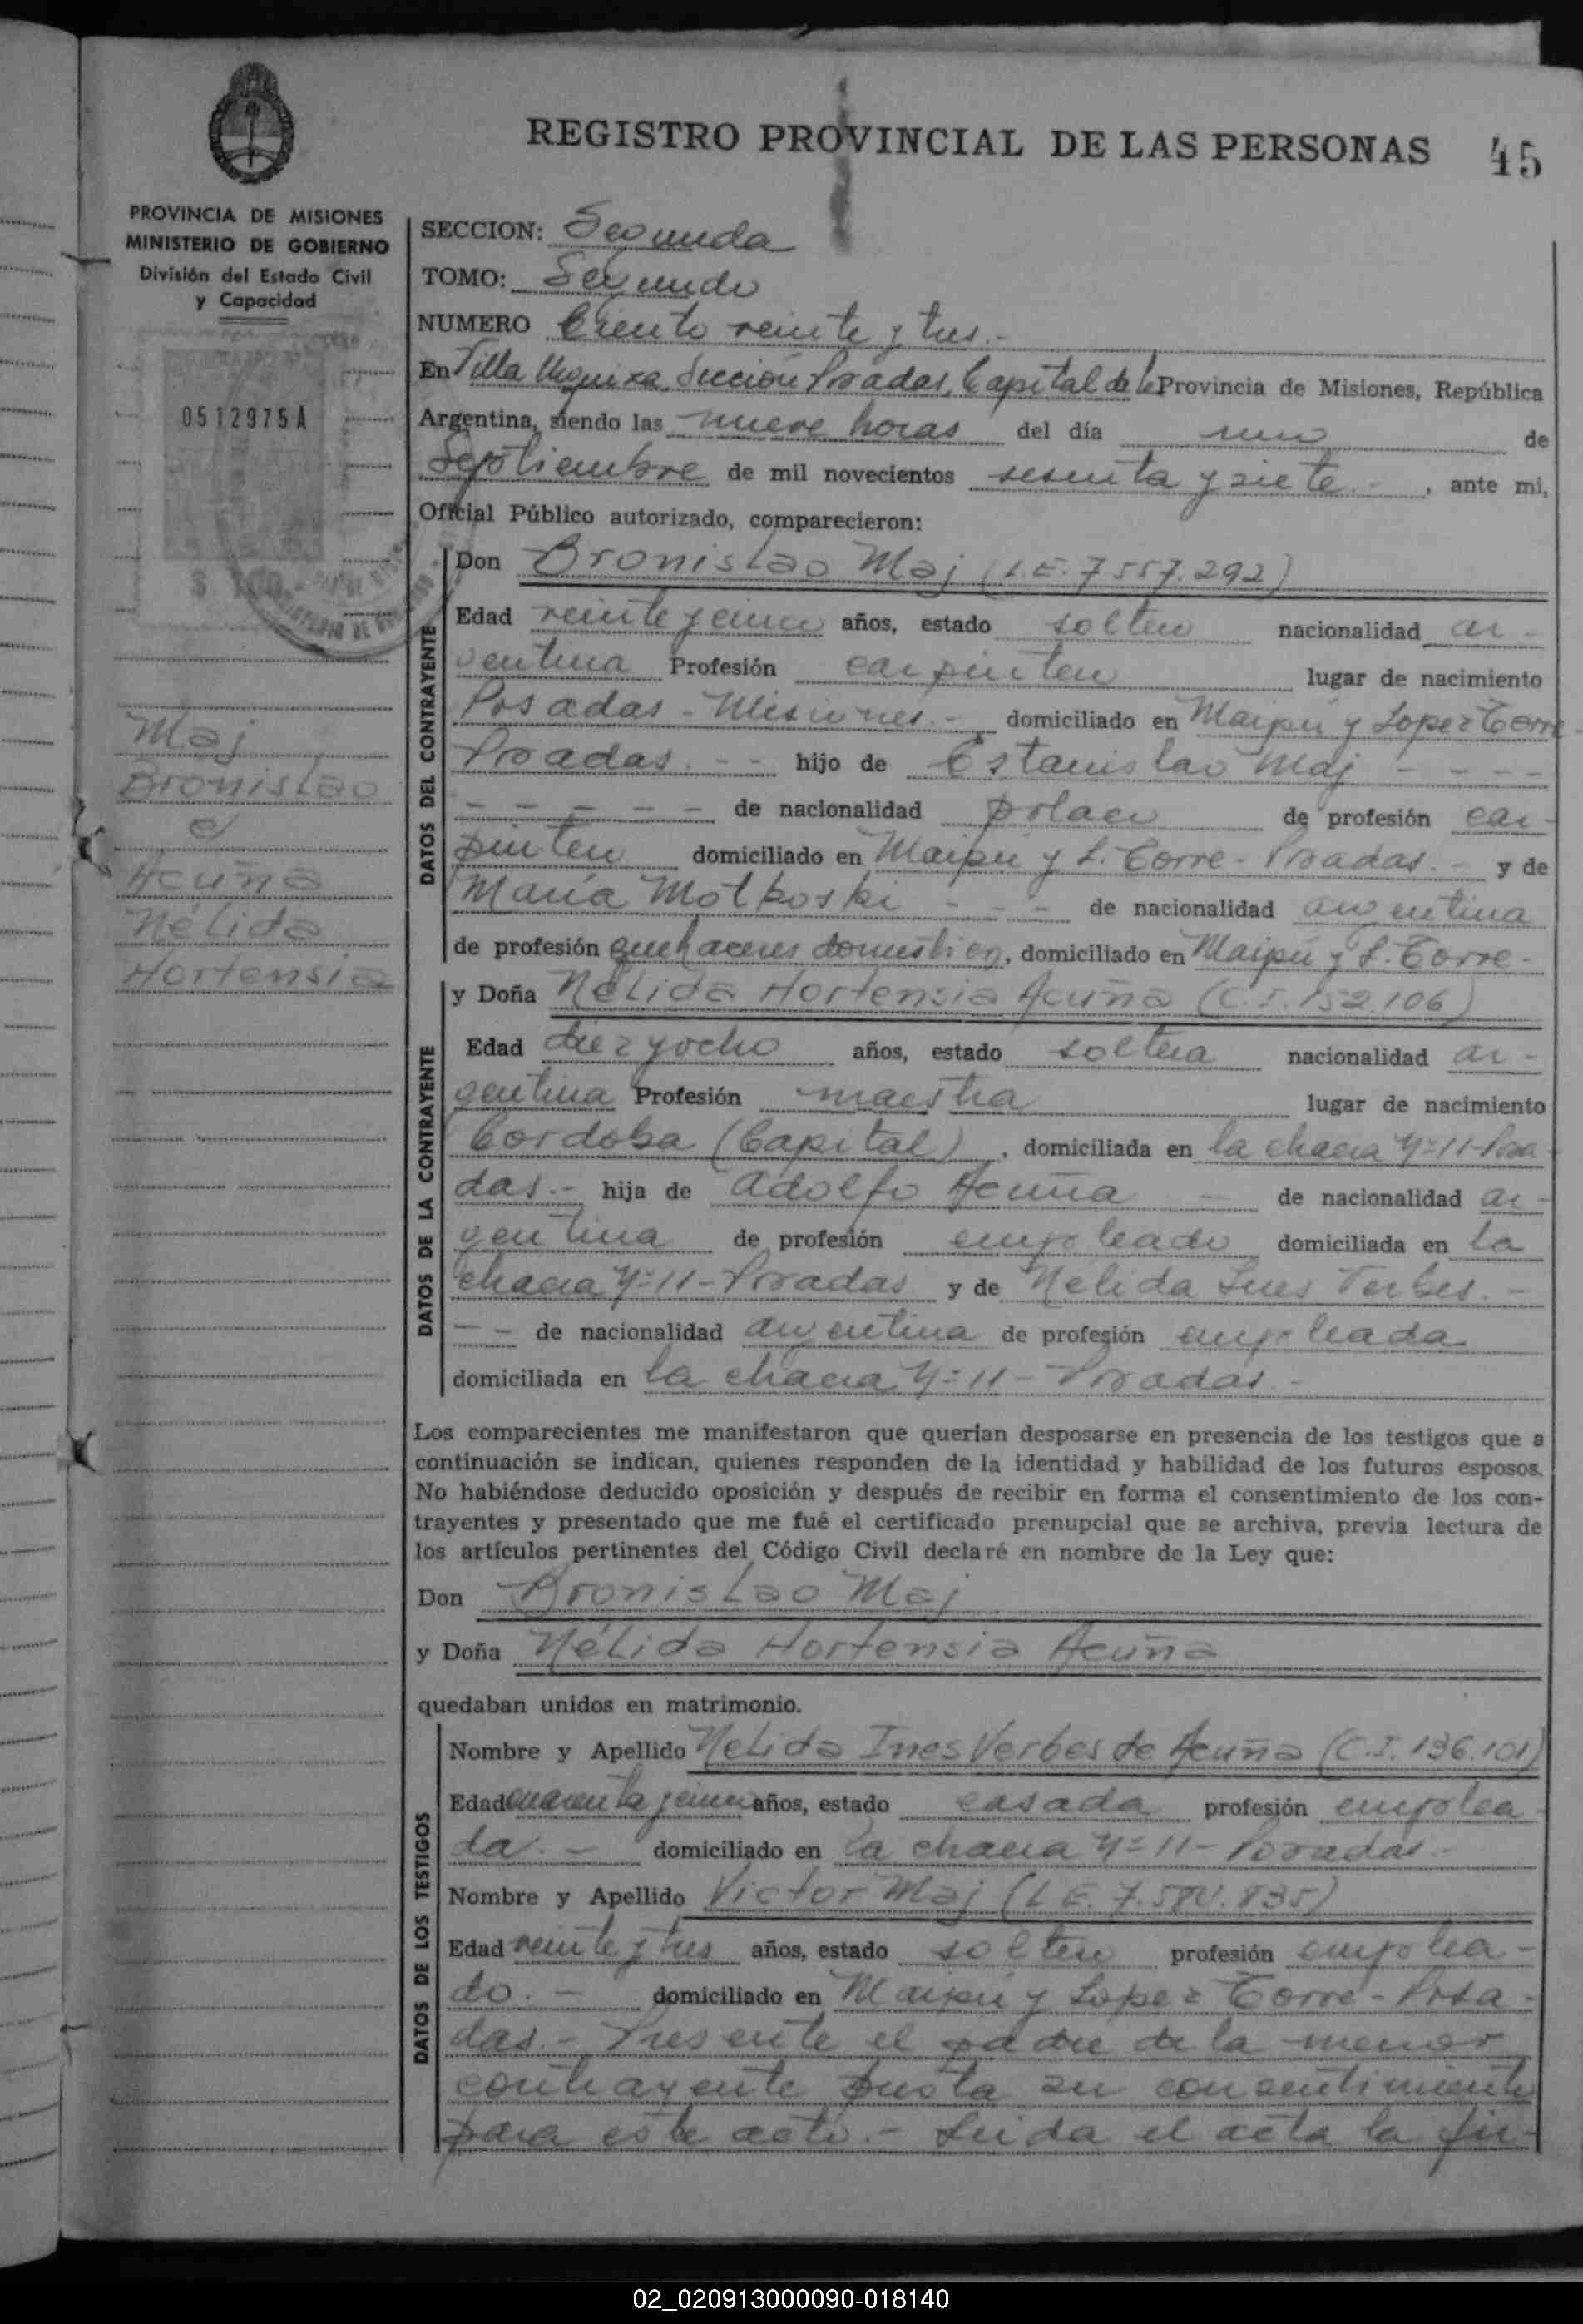 REGISTRO PROVINCIAL DE LAS PERSONAS 45
PROVINCIA DE MISIONES
MINISTERIO DE GOBIERNO
División del Estado Civil
y Capacidad
0512975A
Maj
Bronislao
e
Acuña
Nélida
Hortensia
SECCION: Segunda
TOMO: Segundo
NUMERO Ciento veinte y tres.-
En Villa Urquiza, Sección Posadas, Capital de la Provincia de Misiones, República
Argentina, siendo las nueve horas del día uno de
Septiembre de mil novecientos sesenta y siete.-, ante mi,
Oficial Público autorizado, comparecieron:
DATOS DEL CONTRAYENTE
Don Bronislao Maj (L.E. 7557.292)
Edad veinte y cinco años, estado soltero nacionalidad ar-
gentina Profesión carpintero lugar de nacimiento
Posadas - Misiones.- domiciliado en Maipú y Lopez Torre
Posadas.-- hijo de Estanislao Maj ----
------ de nacionalidad polaco de profesión car-
pintero domiciliado en Maipú y L. Torre - Posadas.- y de
María Motkoski --- de nacionalidad argentina
de profesión quehaceres domésticos, domiciliado en Maipú y L. Torre-
DATOS DE LA CONTRAYENTE
y Doña Nélida Hortensia Acuña (C.I. 152.106)
Edad diez y ocho años, estado soltera nacionalidad ar-
gentina Profesión maestra lugar de nacimiento
Cordoba (Capital), domiciliada en la chacra Nº 11-Posa-
das.- hija de Adolfo Acuña - de nacionalidad ar-
gentina de profesión empleado domiciliada en la
chacra Nº 11 - Posadas y de Nelida Ines Verbes.-
-- de nacionalidad argentina de profesión empleada
domiciliada en la chacra Nº 11 - Posadas.-
Los comparecientes me manifestaron que querían desposarse en presencia de los testigos que a
continuación se indican, quienes responden de la identidad y habilidad de los futuros esposos.
No habiéndose deducido oposición y después de recibir en forma el consentimiento de los con-
trayentes y presentado que me fué el certificado prenupcial que se archiva, previa lectura de
los artículos pertinentes del Código Civil declaré en nombre de la Ley que:
Don Bronislao Maj
y Doña Nélida Hortensia Acuña
quedaban unidos en matrimonio.
DATOS DE LOS TESTIGOS
Nombre y Apellido Nelida Ines Verbes de Acuña (C.I. 136.101)
Edad cuarenta y cinco años, estado casada profesión emplea-
da.- domiciliado en la chacra Nº 11 - Posadas.-
Nombre y Apellido Victor Maj (L.E. 7.580.835)
Edad veinte y tres años, estado soltero profesión emplea-
do.- domiciliado en Maipú y Lopez Torre - Posa-
das.- Presente el padre de la menor
contrayente presta su consentimiento
para este acto.- Leida el acta la fir-
02_020913000090-018140